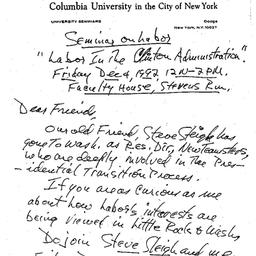 Columbia University in the City of New York
UNIVERSITY SEMINARS
Dodge
New York, N.Y. 10027
Seminar on Labor
"Labor In the Clinton Administration"
Friday Dec 4, 1992, 12N-2PM.
Faculty House, Stevens Rm.
Dear Friend,
Our old Friend, Steve Sleigh has
gone to Wash. as Res. Dir, New Teamsters,
who are deeply involved in the Pres-
-idential Transition Process.
If you are as curious as me
about how Labor's interests are
being viewed in Little Rock & Wash,
Do join Steve Sleigh and me